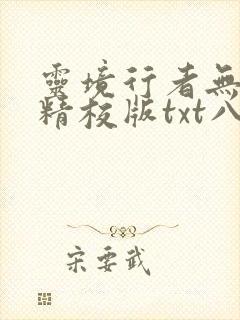 靈境行者無
精校版txt八
宋要武